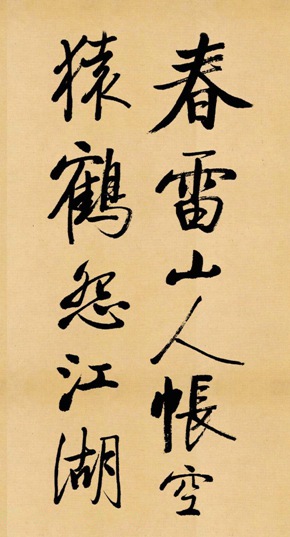 春雷山人帳空
猿鶴怨江湖